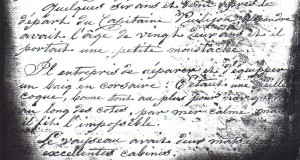 Quelques six ans et demi après le
départ du Capitaine
avait l'âge de vingt deux ans et il
portait une petite moustache.
Il entreprit de réparer et d'équiper
un brig en corsaire: C'était une vieille
coque, bonne tout au plus pour
au long des côtes, par mer calme,
l'impossible.
Le vaisseau avait deux
excellentes cabines